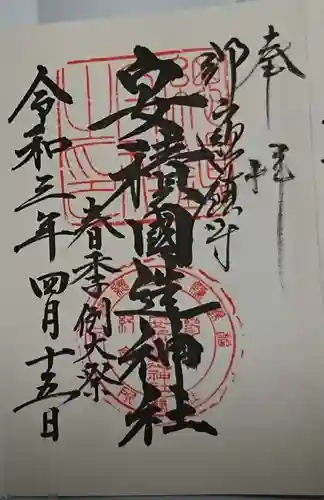 奉拝
郡山総鎮守
安積國造神社
春季例大祭
令和三年四月十五日